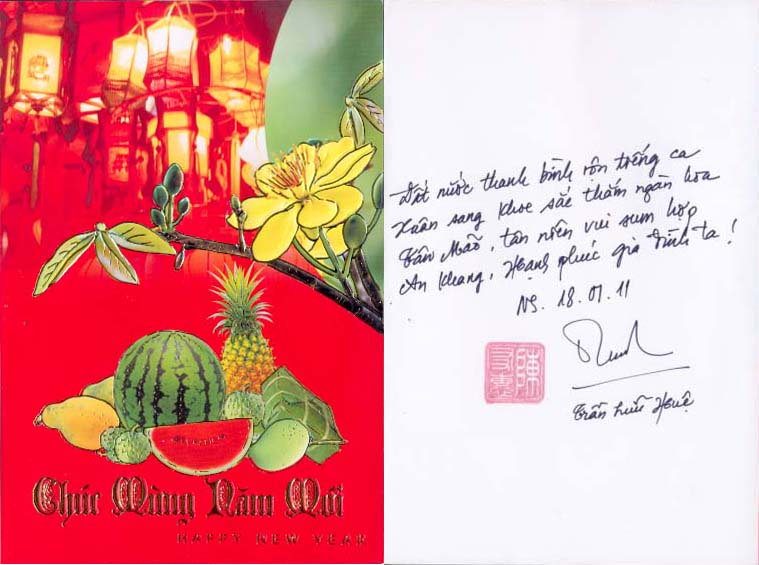 Chúc Mừng Năm Mới
HAPPY NEW YEAR
Đất nước thanh bình rộn tiếng ca
Xuân sang khoe sắc thắm ngàn hoa
Tân Mão, tân niên vui sum họp
An Khang, Hạnh phúc gia đình ta!
NS. 18.01.11
陳
友惠
Trần Hữu Huệ